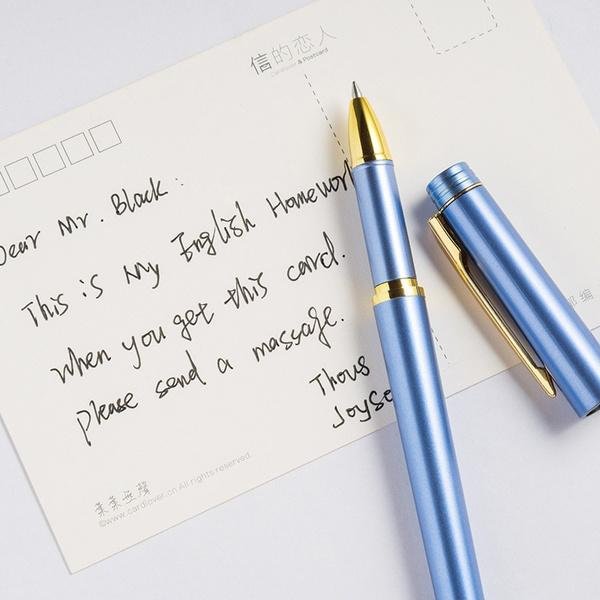 信的恋人
Cardlover & Postcard
Dear Mr. Black:
This is My English Homework
when you get this card.
please send a massage.
Thous
JoySe
©www.cardlover.cn All rights reserved.
编